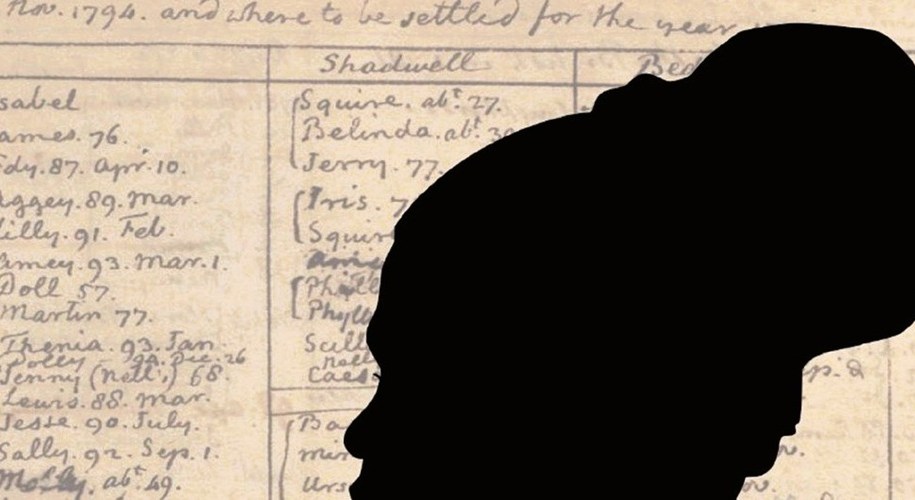 Nov. 1794. and where to be settled for the year
Shadwell
Bed
sabel
ames. 76.
dy. 87. Apr. 10.
ggey. 89. Mar.
illy. 91. Feb.
amey. 93. Mar. 1.
Doll 57.
Martin 77.
Thenia. 93. Jan
Polly 93. Dec. 26
Jenny (Nell's) 68.
Lewis. 88. Mar.
Jesse. 90. July.
Sally. 92. Sep. 1.
abt. 49.
Squire. abt. 27.
Belinda. abt. 39
Jerry. 77.
Iris. 7
Squir
Phyll
Caes
Ba
min
Urs